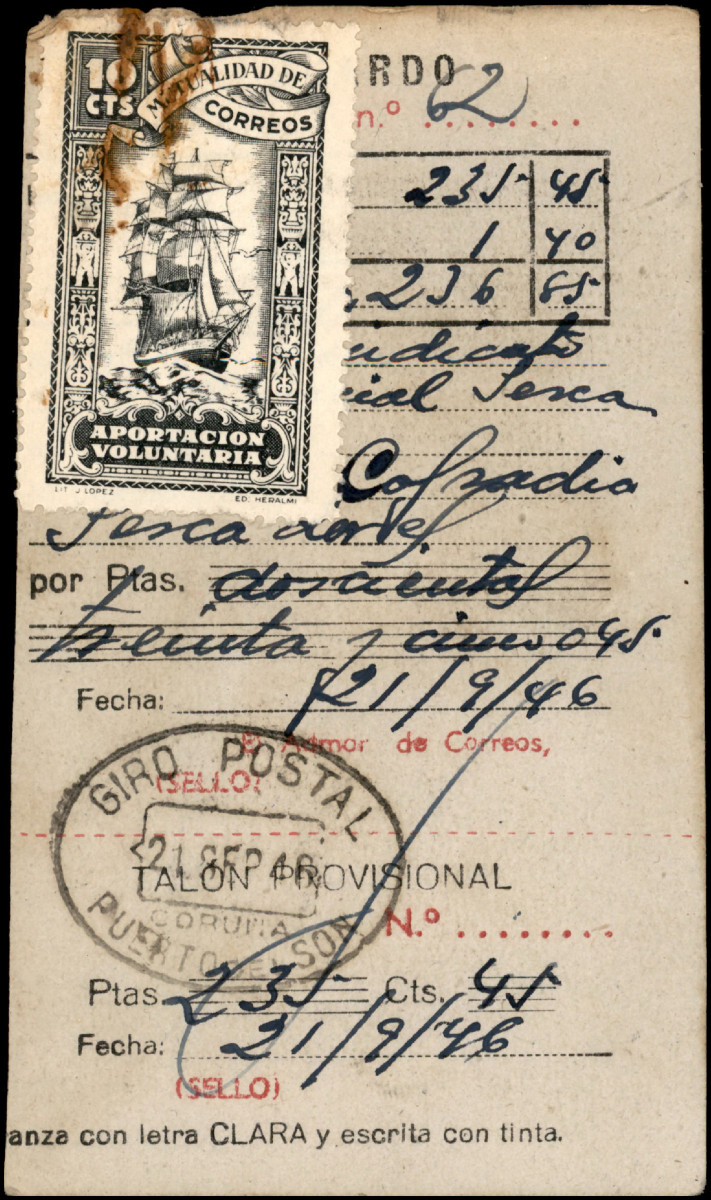 10
CTS
MUTUALIDAD DE
CORREOS
APORTACION
VOLUNTARIA
LIT. J. LOPEZ
ED. HERALMI
RDO
n.º 62
235 45
1 40
236 85
Pesca
Cofradia
Pesca
por Ptas. doscientas
treinta y cinco 045
Fecha: 21/9/46
El Admor de Correos,
(SELLO)
GIRO POSTAL
21 SEP 46
CORUÑA
PUERTO DEL SON
TALÓN PROVISIONAL
N.º
Ptas. 235 Cts. 45
Fecha: 21/9/46
(SELLO)
anza con letra CLARA y escrita con tinta.